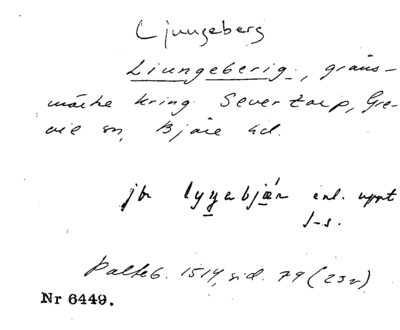 Ljungeberg
Liungeberig, gräns-
märke kring Severtorp, Gre-
vie sn, Bjäre hd.
jfr lyŋabjär enl. uppt
s-s.
Palteb. 1514, sid. 79 (23v)
Nr 6449.